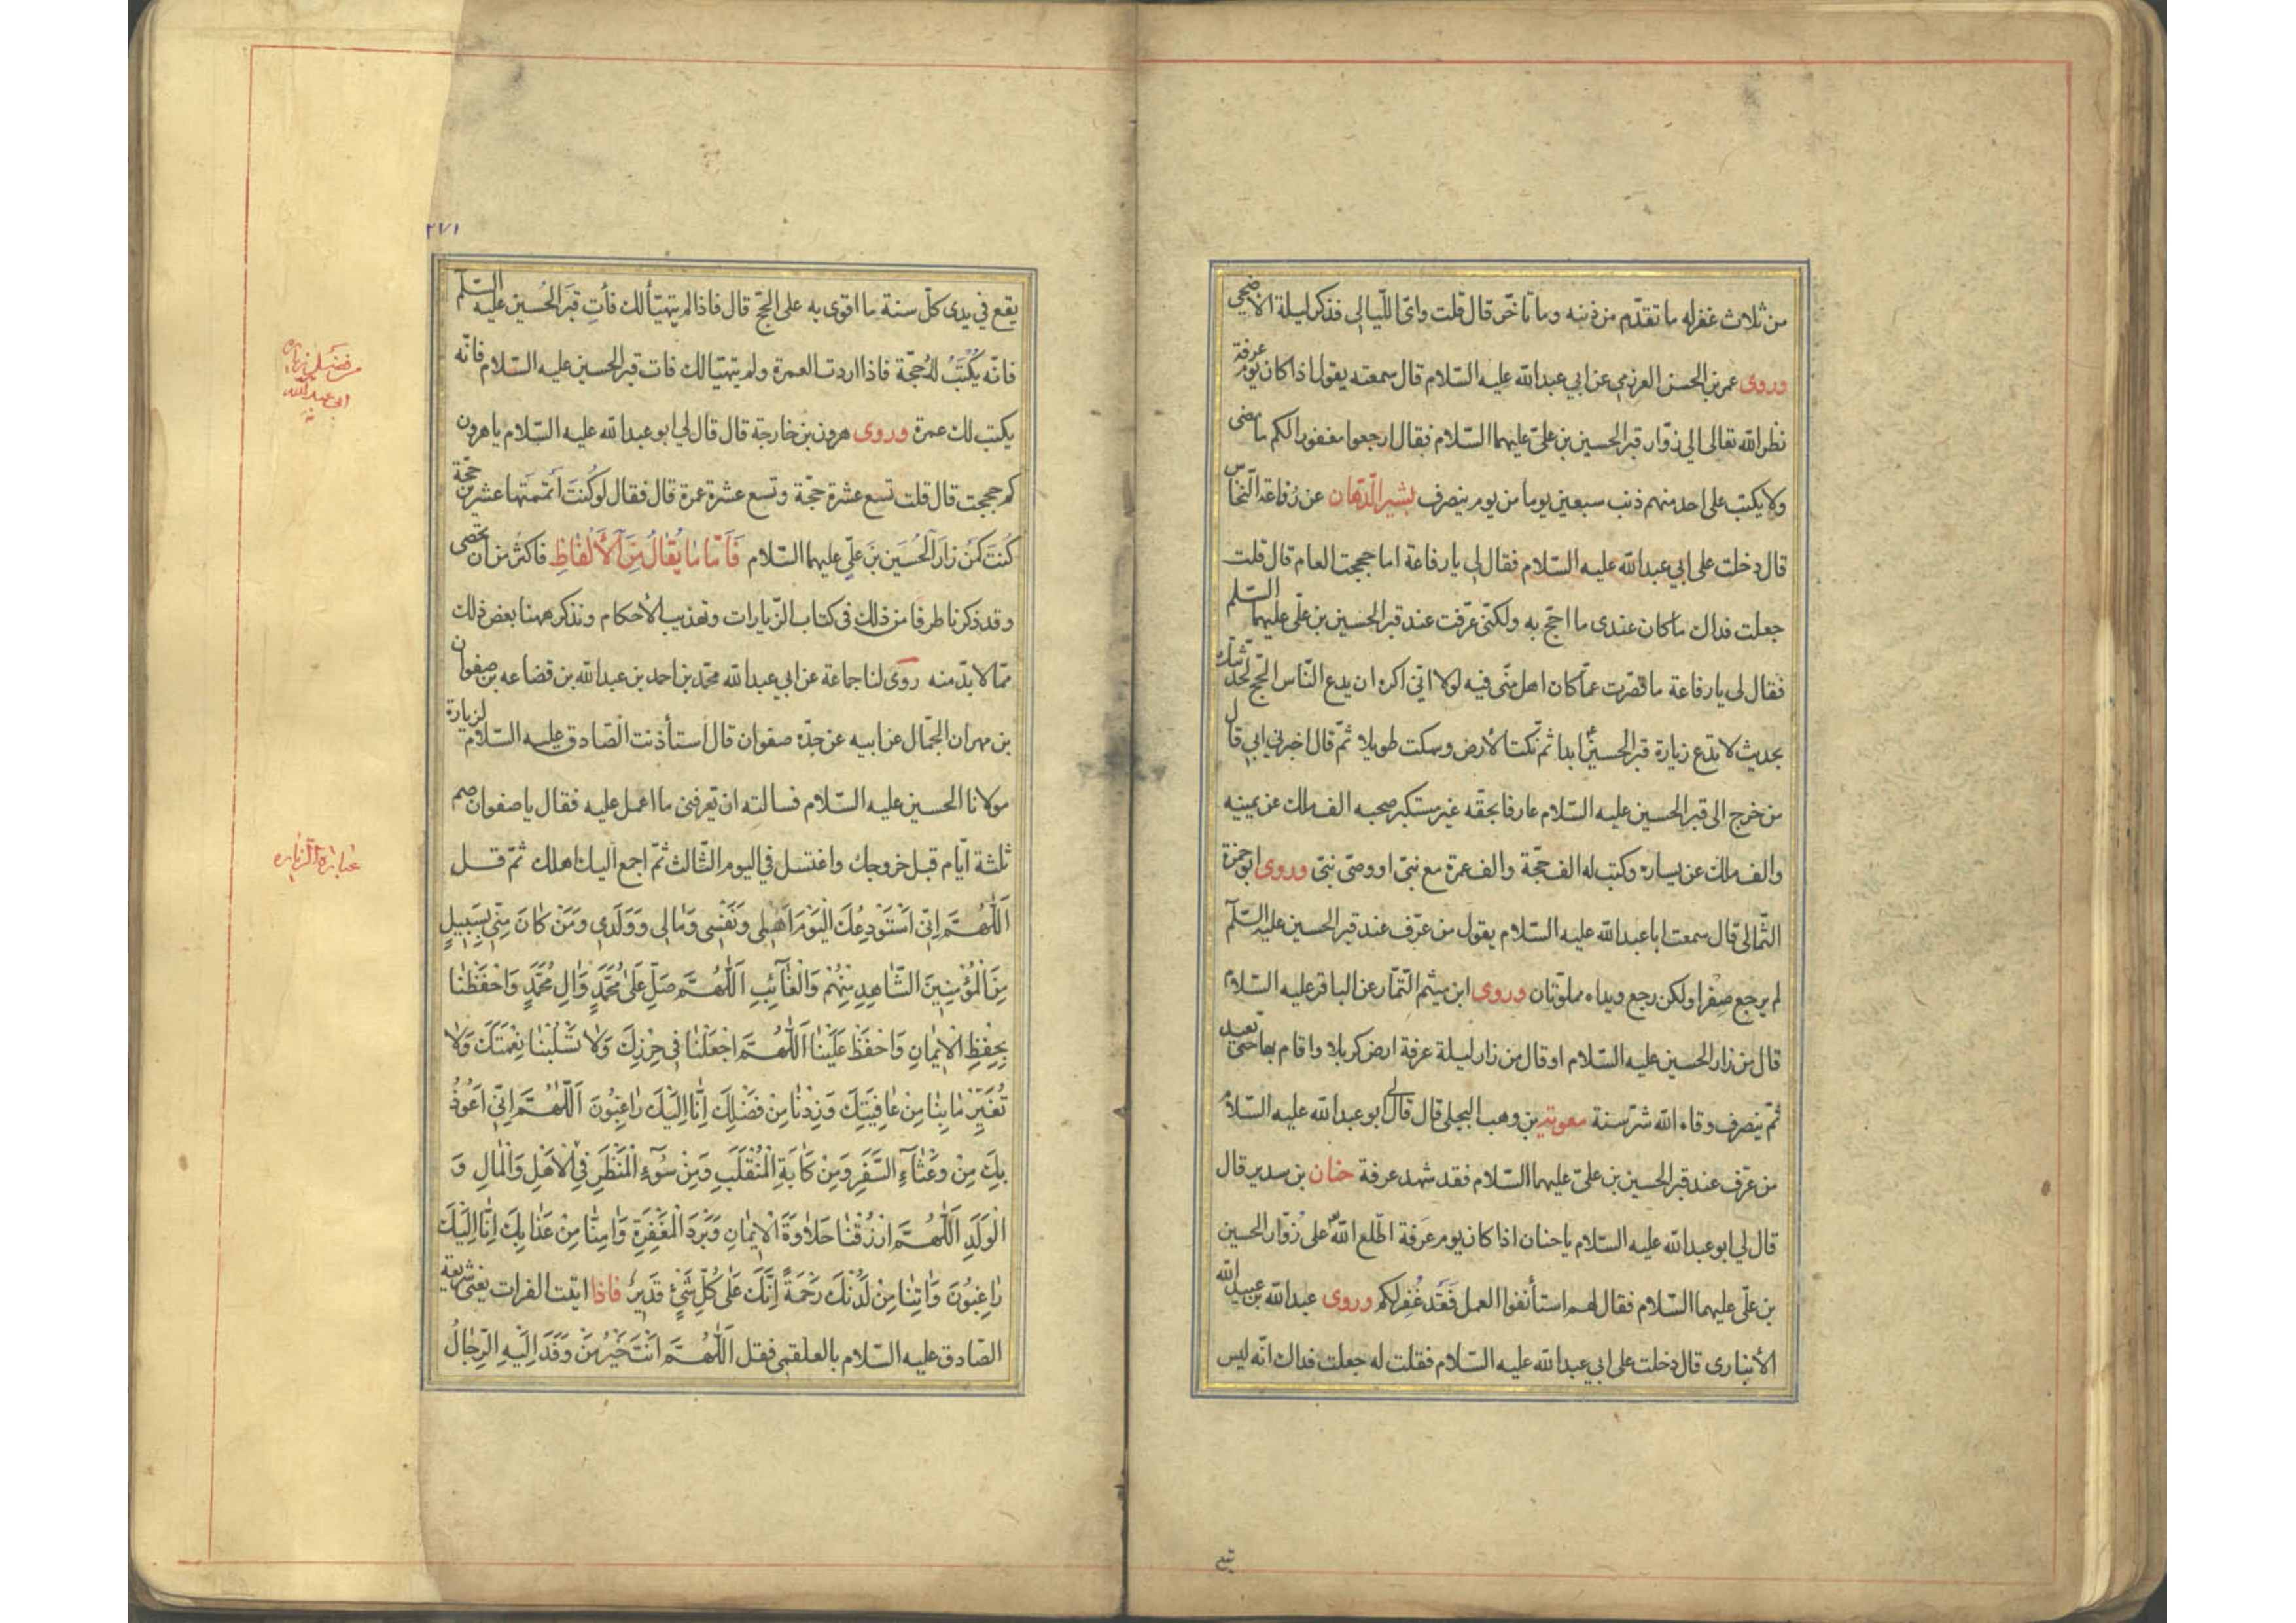 من ثلاث غفر له ما تقدّم من ذنبه وما تاخّر قال قلت واىّ اللّيالى فذكر ليلة الاضحى
وروى عمر بن الحسن العرزمى عن ابي عبدالله عليه السّلام قال سمعته يقول اذا كان يوم عرفة
نظر الله تعالى الى زوّار قبر الحسين بن علىّ عليهما السّلام فقال ارجعوا مغفورا لكم ما مضى
ولا يكتب على احد منهم ذنب سبعين يوما من يوم ينصرف بشير الدّهّان عن رفاعة النّخّاس
قال دخلت على ابي عبدالله عليه السّلام فقال لى يا رفاعة اما حججت العام قال قلت
جعلت فداك ما كان عندى ما احجّ به ولكنّى عرّفت عند قبر الحسين بن علىّ عليهما السّلم
فقال لى يا رفاعة ما قصّرت عمّا كان اهل منًى فيه لولا انّى اكره ان يدع النّاس الحجّ لحدّثتك
بحديث لا تدع زيارة قبر الحسين ع ابدا ثم نكت الأرض وسكت طويلا ثمّ قال اخبرني ابي قال
من خرج الى قبر الحسين عليه السّلام عارفا بحقّه غير مستكبر صحبه الف ملك عن يمينه
والف ملك عن يساره وكتب له الف حجّة والف عمرة مع نبىّ او وصىّ نبىّ وروى ابو حمزة
الثّمالى قال سمعت ابا عبدالله عليه السّلام يقول من عرّف عند قبر الحسين عليه السّلم
لم يرجع صفرا ولكن رجع ويداه مملوّتان وروى ابن ميثم التّمّار عن الباقر عليه السّلام
قال من زار الحسين عليه السّلام او قال من زار ليلة عرفة ارض كربلا واقام بها حتّى تعيد
ثمّ ينصرف وقاه الله شرّ سنة معوية بن وهب البجلى قال قال لى ابو عبدالله عليه السّلام
من عرّف عند قبر الحسين بن علىّ عليهما السّلام فقد شهد عرفة حنان بن سدير قال
قال لي ابو عبدالله عليه السّلام يا حنان اذا كان يوم عرفة اطّلع الله على زوّار الحسين
بن علىّ عليهما السّلام فقال لهم استأنفوا العمل فقد غُفِر لكم وروى عبدالله بن عبيد الله
الأنبارى قال دخلت على ابي عبدالله عليه السّلام فقلت له جعلت فداك انّه ليس
٢٧١
يقع في يدى كلّ سنة ما اقوى به على الحجّ قال فاذا لم يتهيّأ لك فأتِ قبر الحُسين عليه السّلم
فانّه يُكْتَبُ لك حُجّة فاذا اردت العمرة ولم يتهيّا لك فات قبر الحسين عليه السّلام فانّه
يكتب لك عمرة وروى هرون بن خارجة قال قال لي ابو عبدالله عليه السّلام يا هرون
كم حججت قال قلت تسع عشرة حجّة وتسع عشرة عمرة قال فقال لو كُنتَ اتممتها عشرين حجّة
كُنتَ كمَنْ زارَ الحُسَين بنَ علىٍّ عليهما السّلام فَاَمّا ما يُقالُ مِنَ الْاَلْفاظِ فاكثر من ان تحصى
وقد ذكرنا طرفا من ذلك فى كتاب الزّيارات وتهذيب الأحكام ونذكر ههنا بعض ذلك
ممّا لا بدّ منه روى لنا جماعة عن ابي عبدالله محمّد بن احمد بن عبدالله بن قضاعه بن صفوان
بن مهران الجمّال عن ابيه عن جدّه صفوان قال استأذنت الصّادق عليه السّلام لزيارة
مولانا الحسين عليه السّلام فسالته ان يعرفنى ما اعمل عليه فقال يا صفوان صم
ثلثة ايّام قبل خروجك واغتسل في اليوم الثّالث ثمّ اجمع اليك اهلك ثمّ قل
اَللّٰهُمَّ اِنّى اَسْتَوْدِعُكَ الْيَوْمَ اَهْلِى وَنَفْسِى وَمالِى وَوَلَدِى وَمَنْ كانَ مِنّى بِسَبِيلٍ
مِنَ الْمُؤْمِنِينَ الشّاهِدِ مِنْهُمْ وَالْغآئِبِ اَللّٰهُمَّ صَلِّ عَلىٰ مُحَمَّدٍ وَالِ مُحَمَّدٍ وَاحْفَظْنا
بِحِفْظِ الْايمانِ وَاحْفَظْ عَلَيْنا اَللّٰهُمَّ اجْعَلْنا فى حِرْزِكَ وَلا تَسْلُبْنا نِعْمَتَكَ وَلا
تُغَيِّرْ ما بِنا مِنْ عافِيَتِكَ وَزِدْنا مِنْ فَضْلِكَ اِنّا اِلَيْكَ راغِبُونَ اَللّٰهُمَّ اِنّى اَعُوذُ
بِكَ مِنْ وَعْثآءِ السَّفَرِ وَمِنْ كَابَةِ الْمُنْقَلَبِ وَمِنْ سُوٓءِ الْمَنْظَرِ فِى الْاَهْلِ وَالْمالِ وَ
الْوَلَدِ اَللّٰهُمَّ ارْزُقْنا حَلاوَةَ الْايمانِ وَبَرْدَ الْمَغْفِرَةِ وَامِنّا مِنْ عَذابِكَ اِنّا اِلَيْكَ
راغِبُونَ وَاتِنا مِنْ لَدُنْكَ رَحْمَةً اِنَّكَ عَلىٰ كُلِّ شَىْءٍ قَدِيرٌ فاذا اتيت الفرات يعنى شريعة
الصّادق عليه السّلام بالعلقمى فقل اَللّٰهُمَّ اَنْتَ خَيْرُ مَنْ وَفَدَ اِلَيْهِ الرِّجالُ
ابى عبد الله